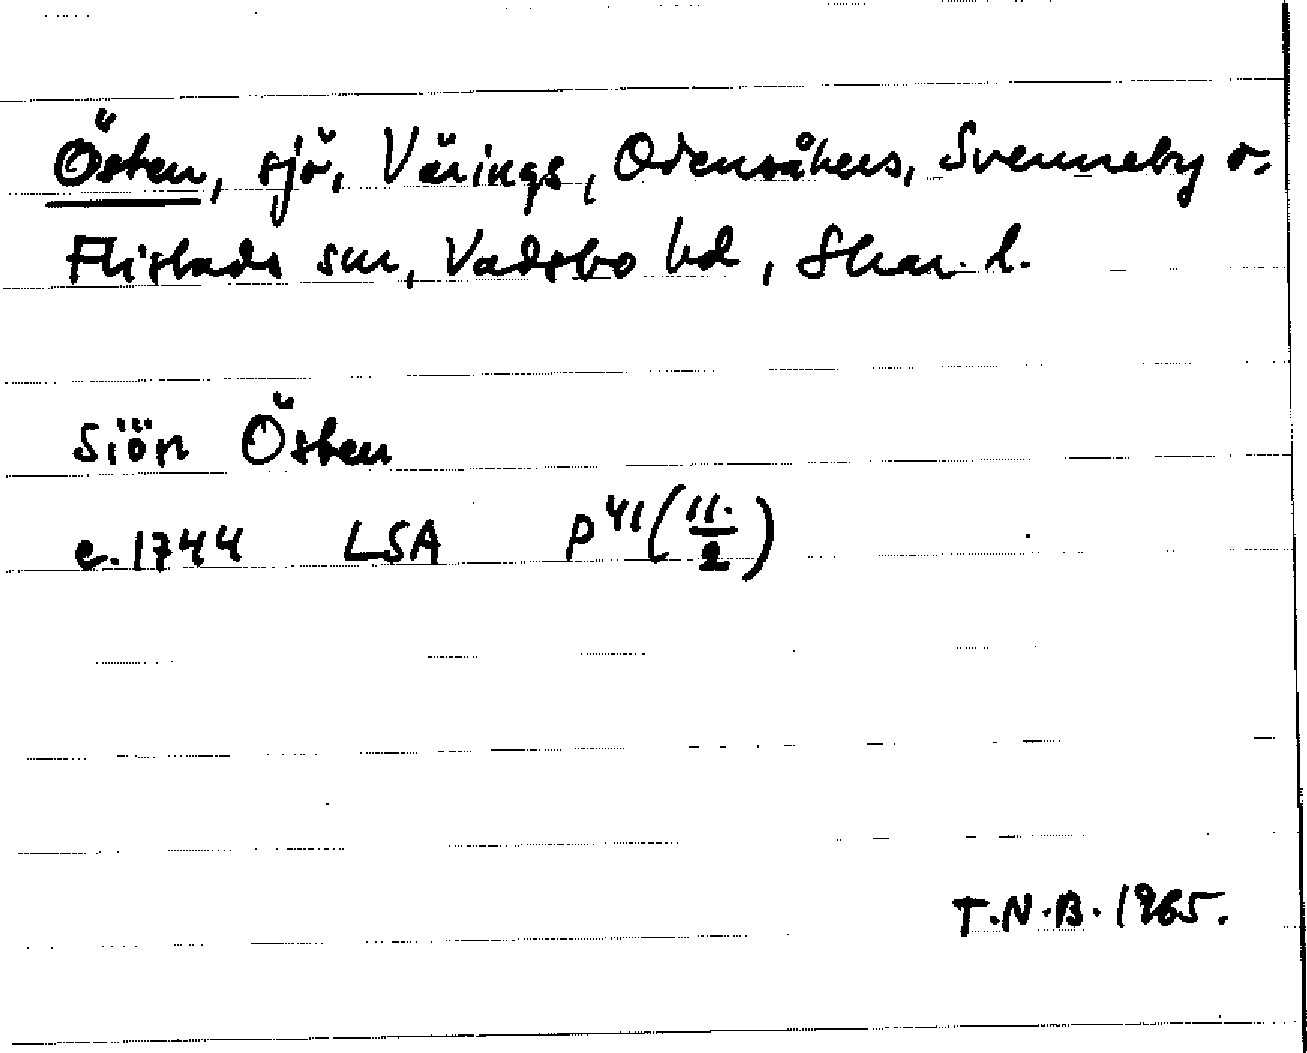 Östen, sjö, Värings, Odensåkers, Svenneby o.
Flistads snr, Vadsbo hd, Skar. l.
Siön Östen
c. 1744 LSA P 41 (11./2)
T.N.B. 1965.